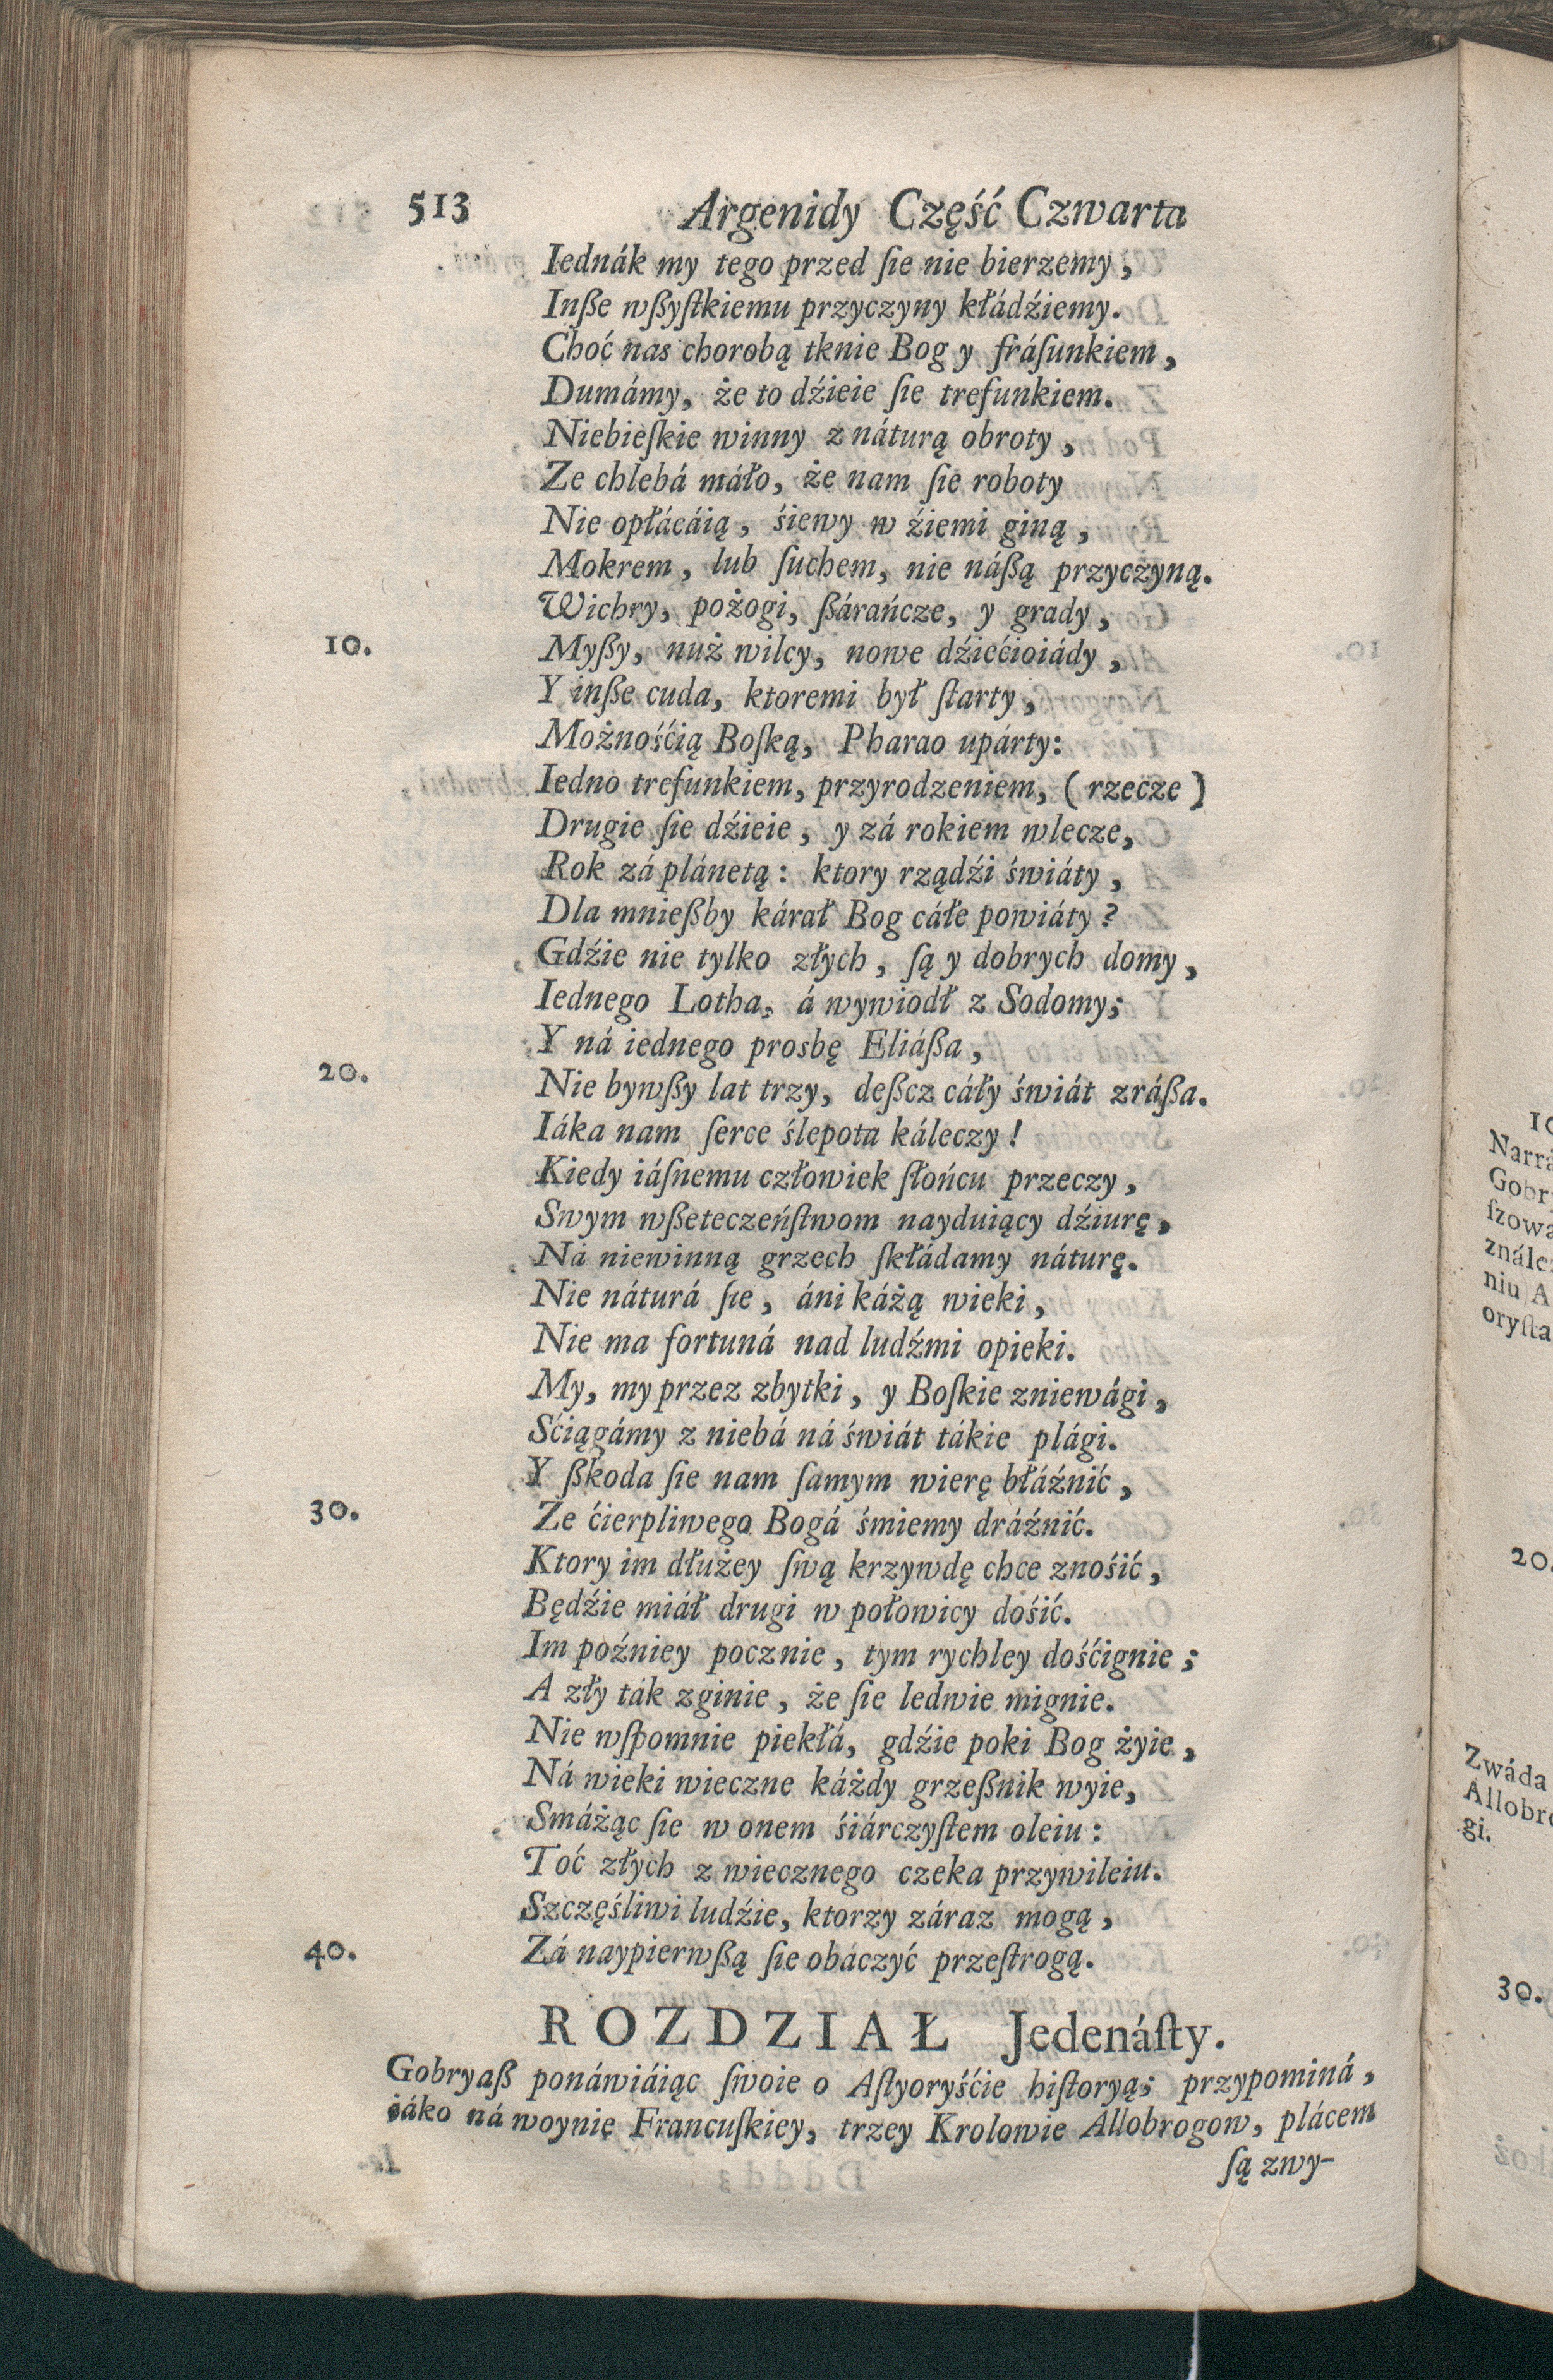 513 Argenidy Część Czwarta
Iednák my tego przed ſie nie bierzemy,
Inße wßyſtkiemu przyczyny kłádźiemy.
Choć nas chorobą tknie Bog y fráſunkiem,
Dumámy, że to dźieie ſie trefunkiem.
Niebieſkie winny z náturą obroty,
Ze chlebá máło, że nam ſie roboty
Nie opłácáią, śiewy w źiemi giną,
Mokrem, lub ſuchem, nie náßą przyczyną.
Wichry, pożogi, ßárańcze, y grady,
10. Myßy, nuż wilcy, nowe dźiećioiády,
Y inße cuda, ktoremi był ſtarty,
Możnośćią Boſką, Pharao upárty:
Iedno trefunkiem, przyrodzeniem, (rzecze)
Drugie ſie dźieie, y zá rokiem wlecze,
Rok zá plánetą: ktory rządźi świáty,
Dla mnießby kárał Bog cáłe powiáty?
Gdźie nie tylko złych, ſą y dobrych domy,
Iednego Lotha, á wywiodł z Sodomy;
Y ná iednego prosbę Eliáßa,
20. Nie bywßy lat trzy, deßcz cáły świát zráßa.
Iáka nam ſerce ślepota káleczy!
Kiedy iáſnemu człowiek ſłońcu przeczy,
Swym wßeteczeńſtwom nayduiący dźiurę,
Ná niewinną grzech ſkłádamy náturę.
Nie náturá ſie, áni káżą wieki,
Nie ma fortuná nad ludźmi opieki.
My, my przez zbytki, y Boſkie zniewági,
Sćiągámy z niebá ná świát tákie plági.
Y ßkoda ſie nam ſamym wierę błáźnić,
30. Ze ćierpliwego Bogá śmiemy dráźnić.
Ktory im dłużey ſwą krzywdę chce znośić,
Będźie miáł drugi w połowicy dośić.
Im poźniey pocznie, tym rychley dośćignie;
A zły ták zginie, że ſie ledwie mignie.
Nie wſpomnie piekłá, gdźie poki Bog żyie,
Ná wieki wieczne káżdy grzeßnik wyie,
Smáżąc ſie w onem śiárczyſtem oleiu:
Toć złych z wiecznego czeka przywileiu.
Szczęśliwi ludźie, ktorzy záraz mogą,
40. Zá naypierwßą ſie obáczyć przeſtrogą.
ROZDZIAŁ Jedenáſty.
Gobryaß ponáwiáiąc ſwoie o Aſtyoryśćie hiſtoryą; przypominá,
iáko ná woynie Francuſkiey, trzey Krolowie Allobrogow, plácem
ſą zwy-
Narrá
Gobr
ſzowa
znále
niu A
oryſta
20.
Zwáda
Allobro
gi.
30.